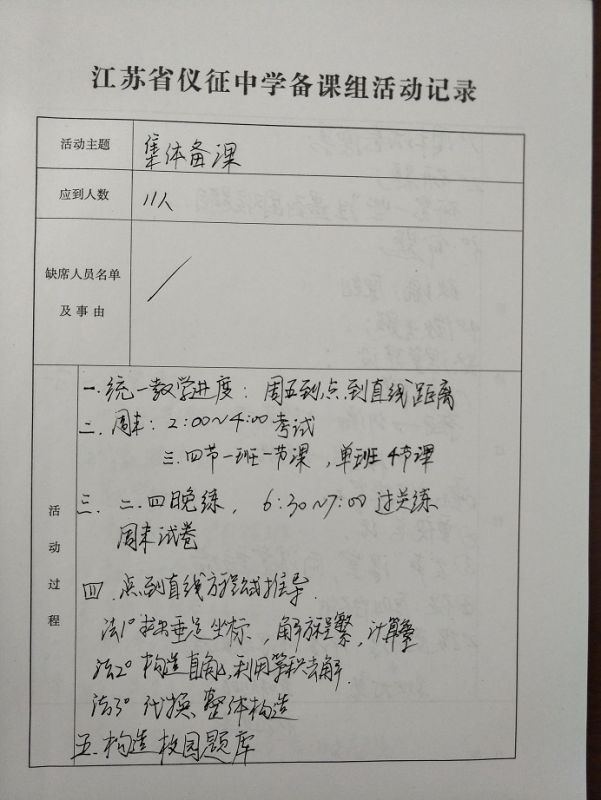 江苏省仪征中学备课组活动记录
活动主题 集体备课
应到人数 11人
缺席人员名单
及事由
活动过程
一.统一教学进度：周五到点到直线距离
二.周末：2:00~4:00考试
三.四节一班一节课，单班4节课
三.二.四晚练，6:30~7:00过关练
周末试卷
四.点到直线方程式推导.
法1°求出垂足坐标，解方程繁，计算量
法2°构造直角△,利用等积去解.
法3°代换 整体构造
五.构造校园题库